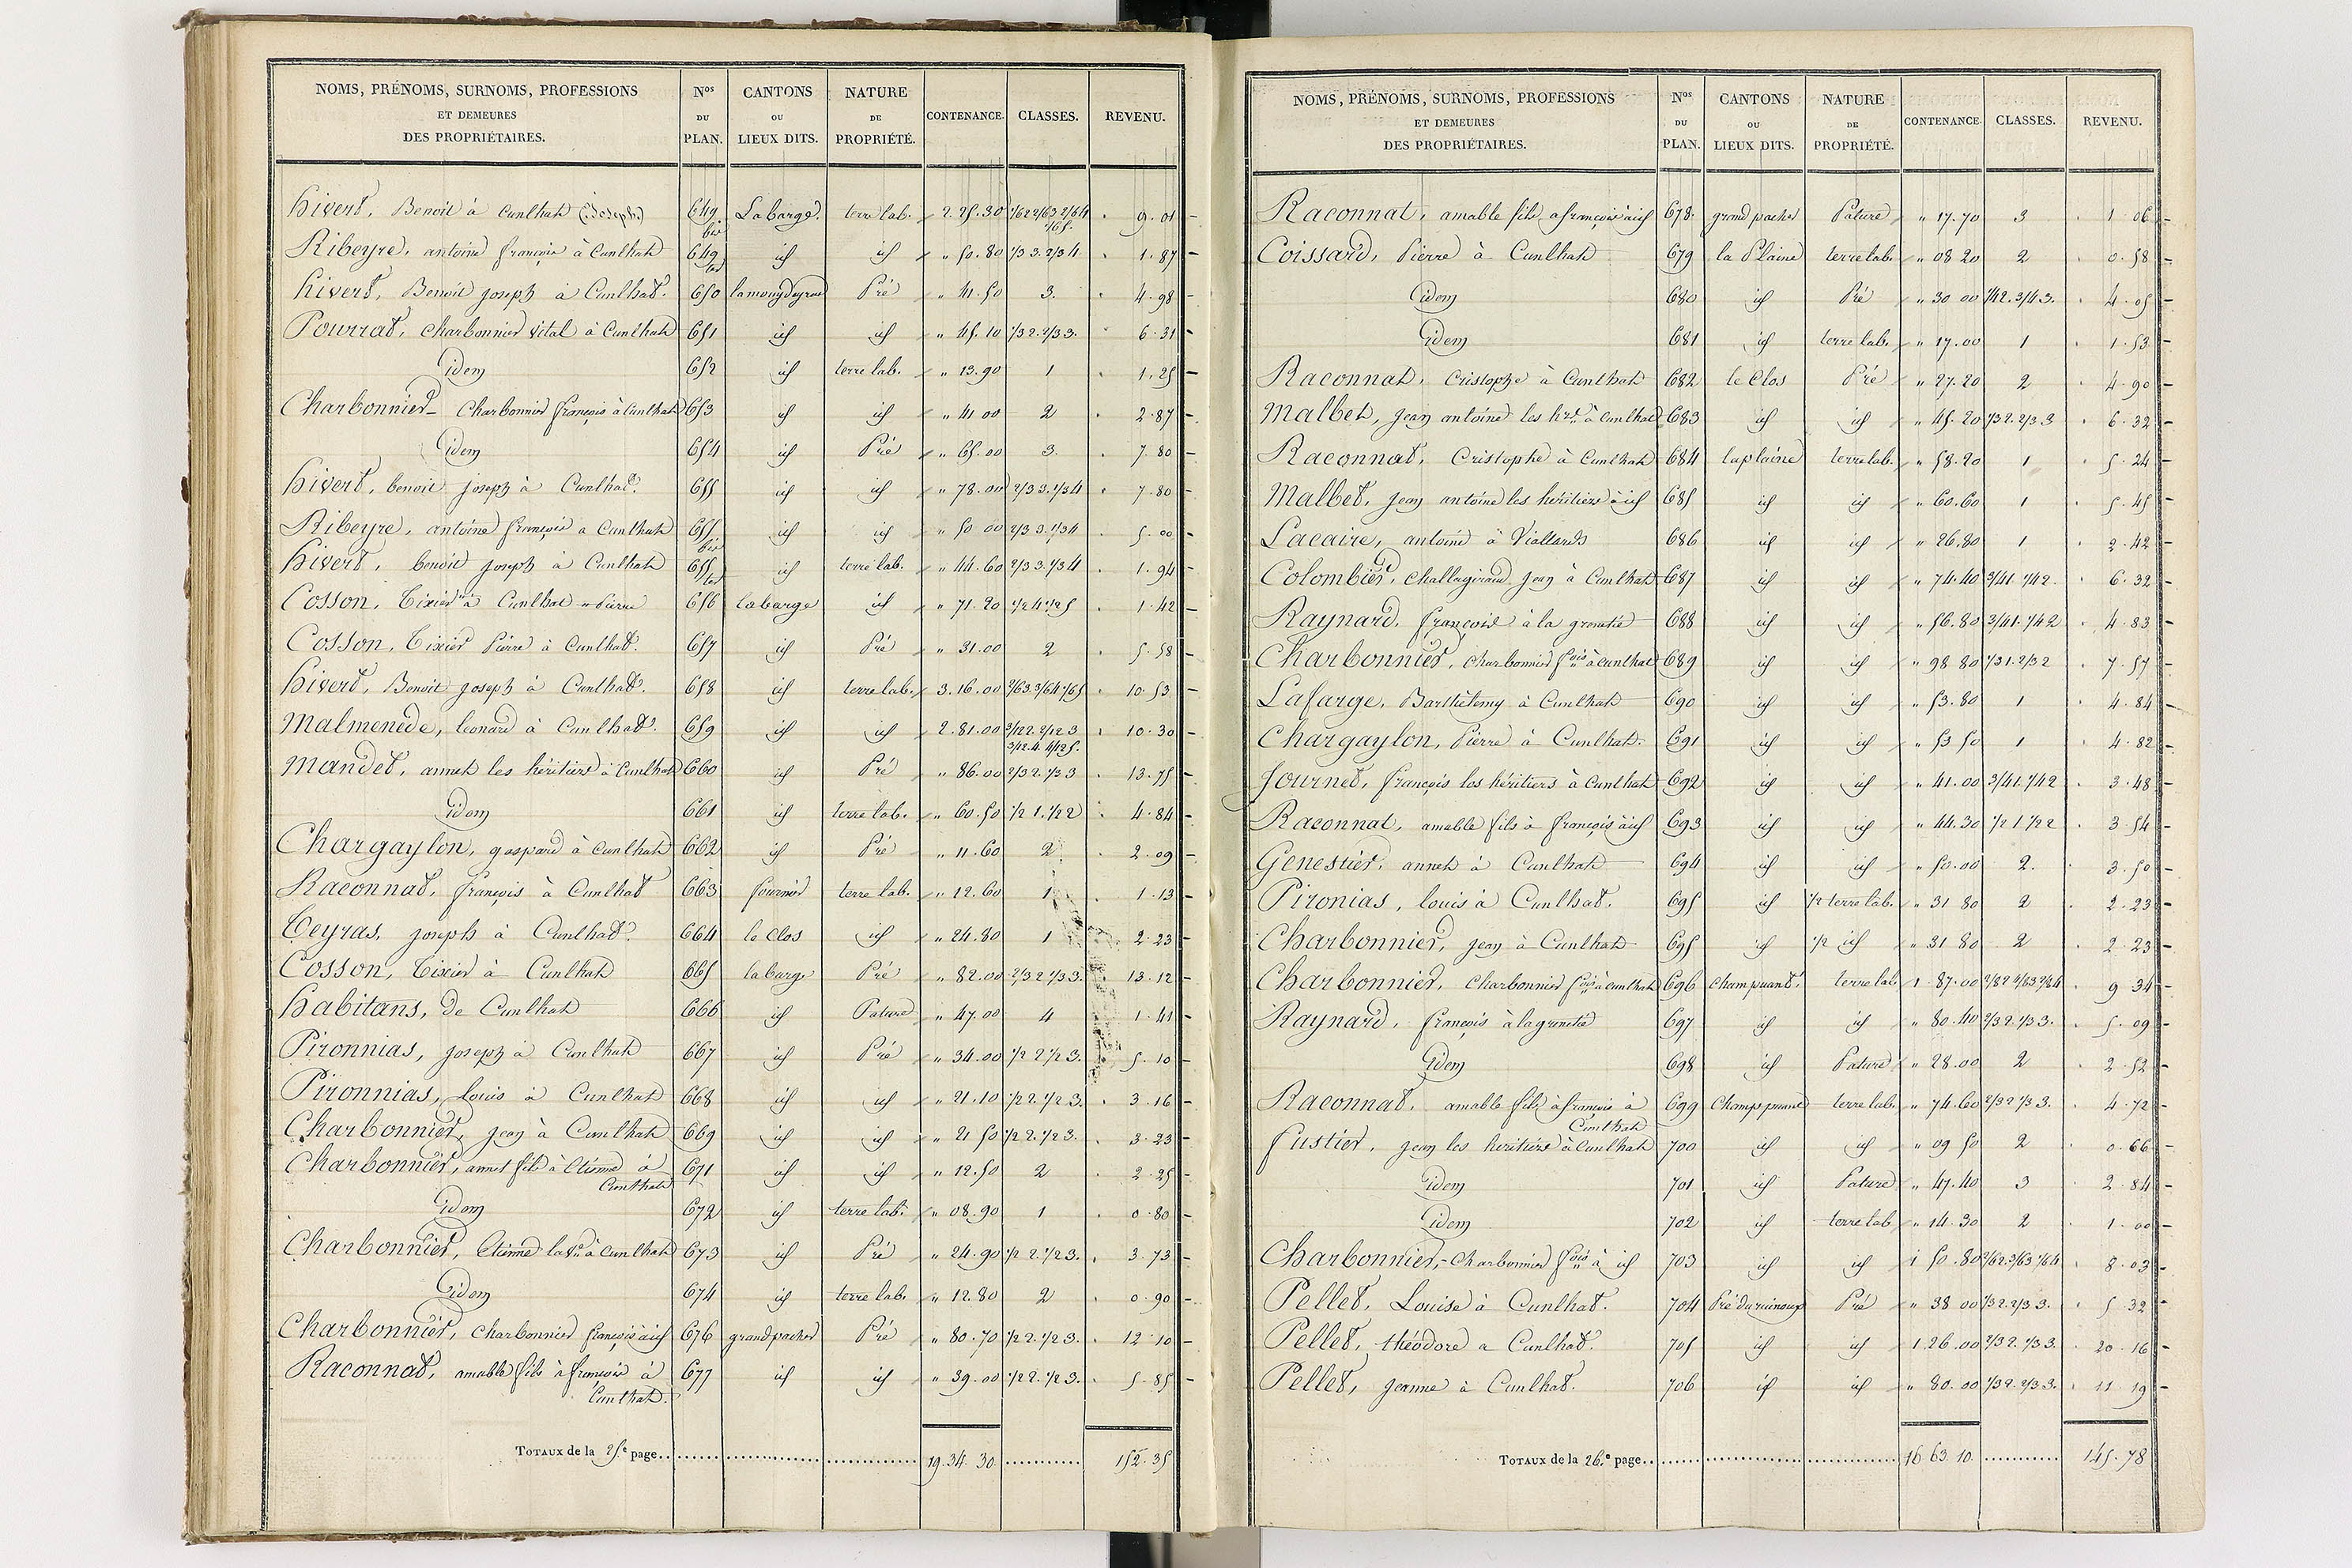 NOMS, PRÉNOMS, SURNOMS, PROFESSIONS ET DEMEURES DES PROPRIÉTAIRES. Nos DU PLAN. CANTONS OU LIEUX DITS. NATURE DE PROPRIÉTÉ. CONTENANCE. CLASSES. REVENU.
hivert, Benoit à Cunlhat (Joseph) 649 bis Labarge terre lab. 2.25.30 1/6 2 2/6 3 2/6 4 1/6 5. 9.01
Ribeyre, antoine françois à Cunlhat 649 ter id id " 50.80 1/3 3. 2/3 4. 1.87
hivert, Benoit joseph à Cunlhat. 650 Pré " 41.50 3. 4.98
Pourrat, charbonnier vital à Cunlhat 651 id id " 45.10 1/3 2. 2/3 3. 6.31
Idem 652 id terre lab. " 13.90 1 1.25
Charbonnier - Charbonnier françois à Cunlhat 653 id id " 41 00 2 2.87
Idem 654 id Pré " 65.00 3. 7.80
hivert, benoit joseph à Cunlhat. 655 id id " 78.00 2/3 3. 1/3 4 7.80
Ribeyre, antoine françois a Cunlhat 655 bis id id " 50 00 2/3 3. 1/3 4 5.00
hivert, benoit joseph à Cunlhat 655 ter id terre lab. " 44.60 2/3 3. 1/3 4 1.94
Cosson, Tixier à Cunlhat Pierre 656 labarge id " 71.20 1/2 4 1/2 5 1.42
Cosson, Tixier Pierre à Cunlhat. 657 id Pré " 31.00 2 5.58
hivert, Benoit joseph à Cunlhat. 658 id terre lab. 3.16.00 2/6 3. 3/6 4 1/6 5 10.53
Malmenède, leonard à Cunlhat. 659 id id 2.81.00 3/12 2. 2/12 3 3/12 4. 4/12 5. 10.30
Mandet, annet les héritiers à Cunlhat 660 id Pré " 86.00 2/3 2. 1/3 3 13.75
Idem 661 id terre lab. " 60.50 1/2 1. 1/2 2 4.84
Chargaylon, gaspard à Cunlhat 662 id Pré " 11.60 2 2.09
Raconnat, françois à Cunlhat 663 fournier terre lab. " 12.60 1 1.13
Teyras, joseph à Cunlhat. 664 le Clos id " 24.80 1 2.23
Cosson, Tixier à Cunlhat 665 labarge Pré " 82.00 2/3 2 1/3 3. 13.12
habitans, de Cunlhat 666 id Pature " 47.00 4 1.41
Pironnias, joseph à Cunlhat 667 id Pré " 34.00 1/2 2 1/2 3. 5.10
Pironnias, louis à Cunlhat 668 id id " 21.10 1/2 2. 1/2 3. 3.16
Charbonnier, jean à Cunlhat 669 id id " 21 50 1/2 2. 1/2 3. 3.23
Charbonnier, annet fils à Etienne à Cunlhat 671 id id " 12.50 2 2.25
Idem 672 id terre lab. " 08.90 1 0.80
Charbonnier, Etienne la Ve à Cunlhat 673 id Pré " 24.90 1/2 2. 1/2 3. 3.73
Idem 674 id terre lab. " 12.80 2 0.90
Charbonnier, charbonnier françois à id 676 grand pacher Pré " 80.70 1/2 2. 1/2 3. 12 10
Raconnat, amable fils à françois à Cunlhat. 677 id id " 39.00 1/2 2. 1/2 3. 5.85
TOTAUX de la 25e page 19.34.30. 152.35
NOMS, PRÉNOMS, SURNOMS, PROFESSIONS ET DEMEURES DES PROPRIÉTAIRES. Nos DU PLAN. CANTONS OU LIEUX DITS. NATURE DE PROPRIÉTÉ. CONTENANCE. CLASSES. REVENU.
Raconnat, amable fils a françois à id 678 grand pacher Pature " 17.70 3 1 06
Coissard, Pierre à Cunlhat 679 la Plaine terre lab. " 08 20 2 0.58
Idem 680 id Pré " 30 00 1/4 2. 3/4 3. 4.05
Idem 681 id terre lab. " 17.00 1 1.53
Raconnat, Cristophe à Cunlhat 682 le Clos Pré " 27.20 2 4.90
Malbet, jean antoine les hers à Cunlhat 683 id id " 45.20 1/3 2. 2/3 3 6.32
Raconnat, Cristophe à Cunlhat 684 laplaine terre lab. " 58.20 1 5.24
Malbet, jean antoine les héritiers à id 685 id id " 60.60 1 5.45
Lacaire, antoine à Viallards 686 id id " 26.80 1 2.42
Colombier, jean à Cunlhat 687 id id " 74.40 3/4 1. 1/4 2. 6.32
Raynard, françois à la gronetie 688 id id " 56.80 3/4 1. 1/4 2 4.83
Charbonnier, charbonnier fois à cunlhat 689 id id " 98 80 1/3 1. 2/3 2 7.57
Lafarge, Barthélemy à Cunlhat 690 id id " 53.80 1 4.84
Chargaylon, Pierre à Cunlhat. 691 id id " 53 50 1 4.82
Journet, françois les héritiers à Cunlhat 692 id id " 41.00 3/4 1. 1/4 2 3.48
Raconnat, amable fils à françois à id 693 id id " 44.30 1/2 1 1/2 2 3.54
Genestier, annet à Cunlhat 694 id id " 50.00 2. 3.50
Pironias, louis à Cunlhat. 695 id 1/2 terre lab. " 31 80 2 2.23
Charbonnier, jean à Cunlhat 695 id 1/2 id " 31 80 2 2.23
Charbonnier, Charbonnier fois à cunlhat 696 terre lab 1 87.00 9 34
Raynard, françois à la gronetie 697 id id " 80.40 2/3 2. 1/3 3. 5.09
Idem 698 id Pature " 28.00 2 2.52
Raconnat, amable fils à françois à Cunlhat 699 terre lab. " 74.60 2/3 2 1/3 3. 4.72
fustier, jean les heritiers à Cunlhat 700 id id " 09 50 2 0.66
Idem 701 id Pature " 47.40 3 2.84
Idem 702 id terre lab " 14.30 2 1.00
Charbonnier, - Charbonnier fois à id 703 id id 1 50.80 2/6 2. 3/6 3 1/6 4 8.03
Pellet, Louise à Cunlhat. 704 Pré " 38 00 1/3 2. 2/3 3. 5 32
Pellet, théodore a Cunlhat. 705 id id 1 26.00 2/3 2. 1/3 3. 20.16
Pellet, jeanne à Cunlhat. 706 id id " 80.00 1/3 2. 2/3 3. 11 19
TOTAUX de la 26e page 16 63.10. 145.78